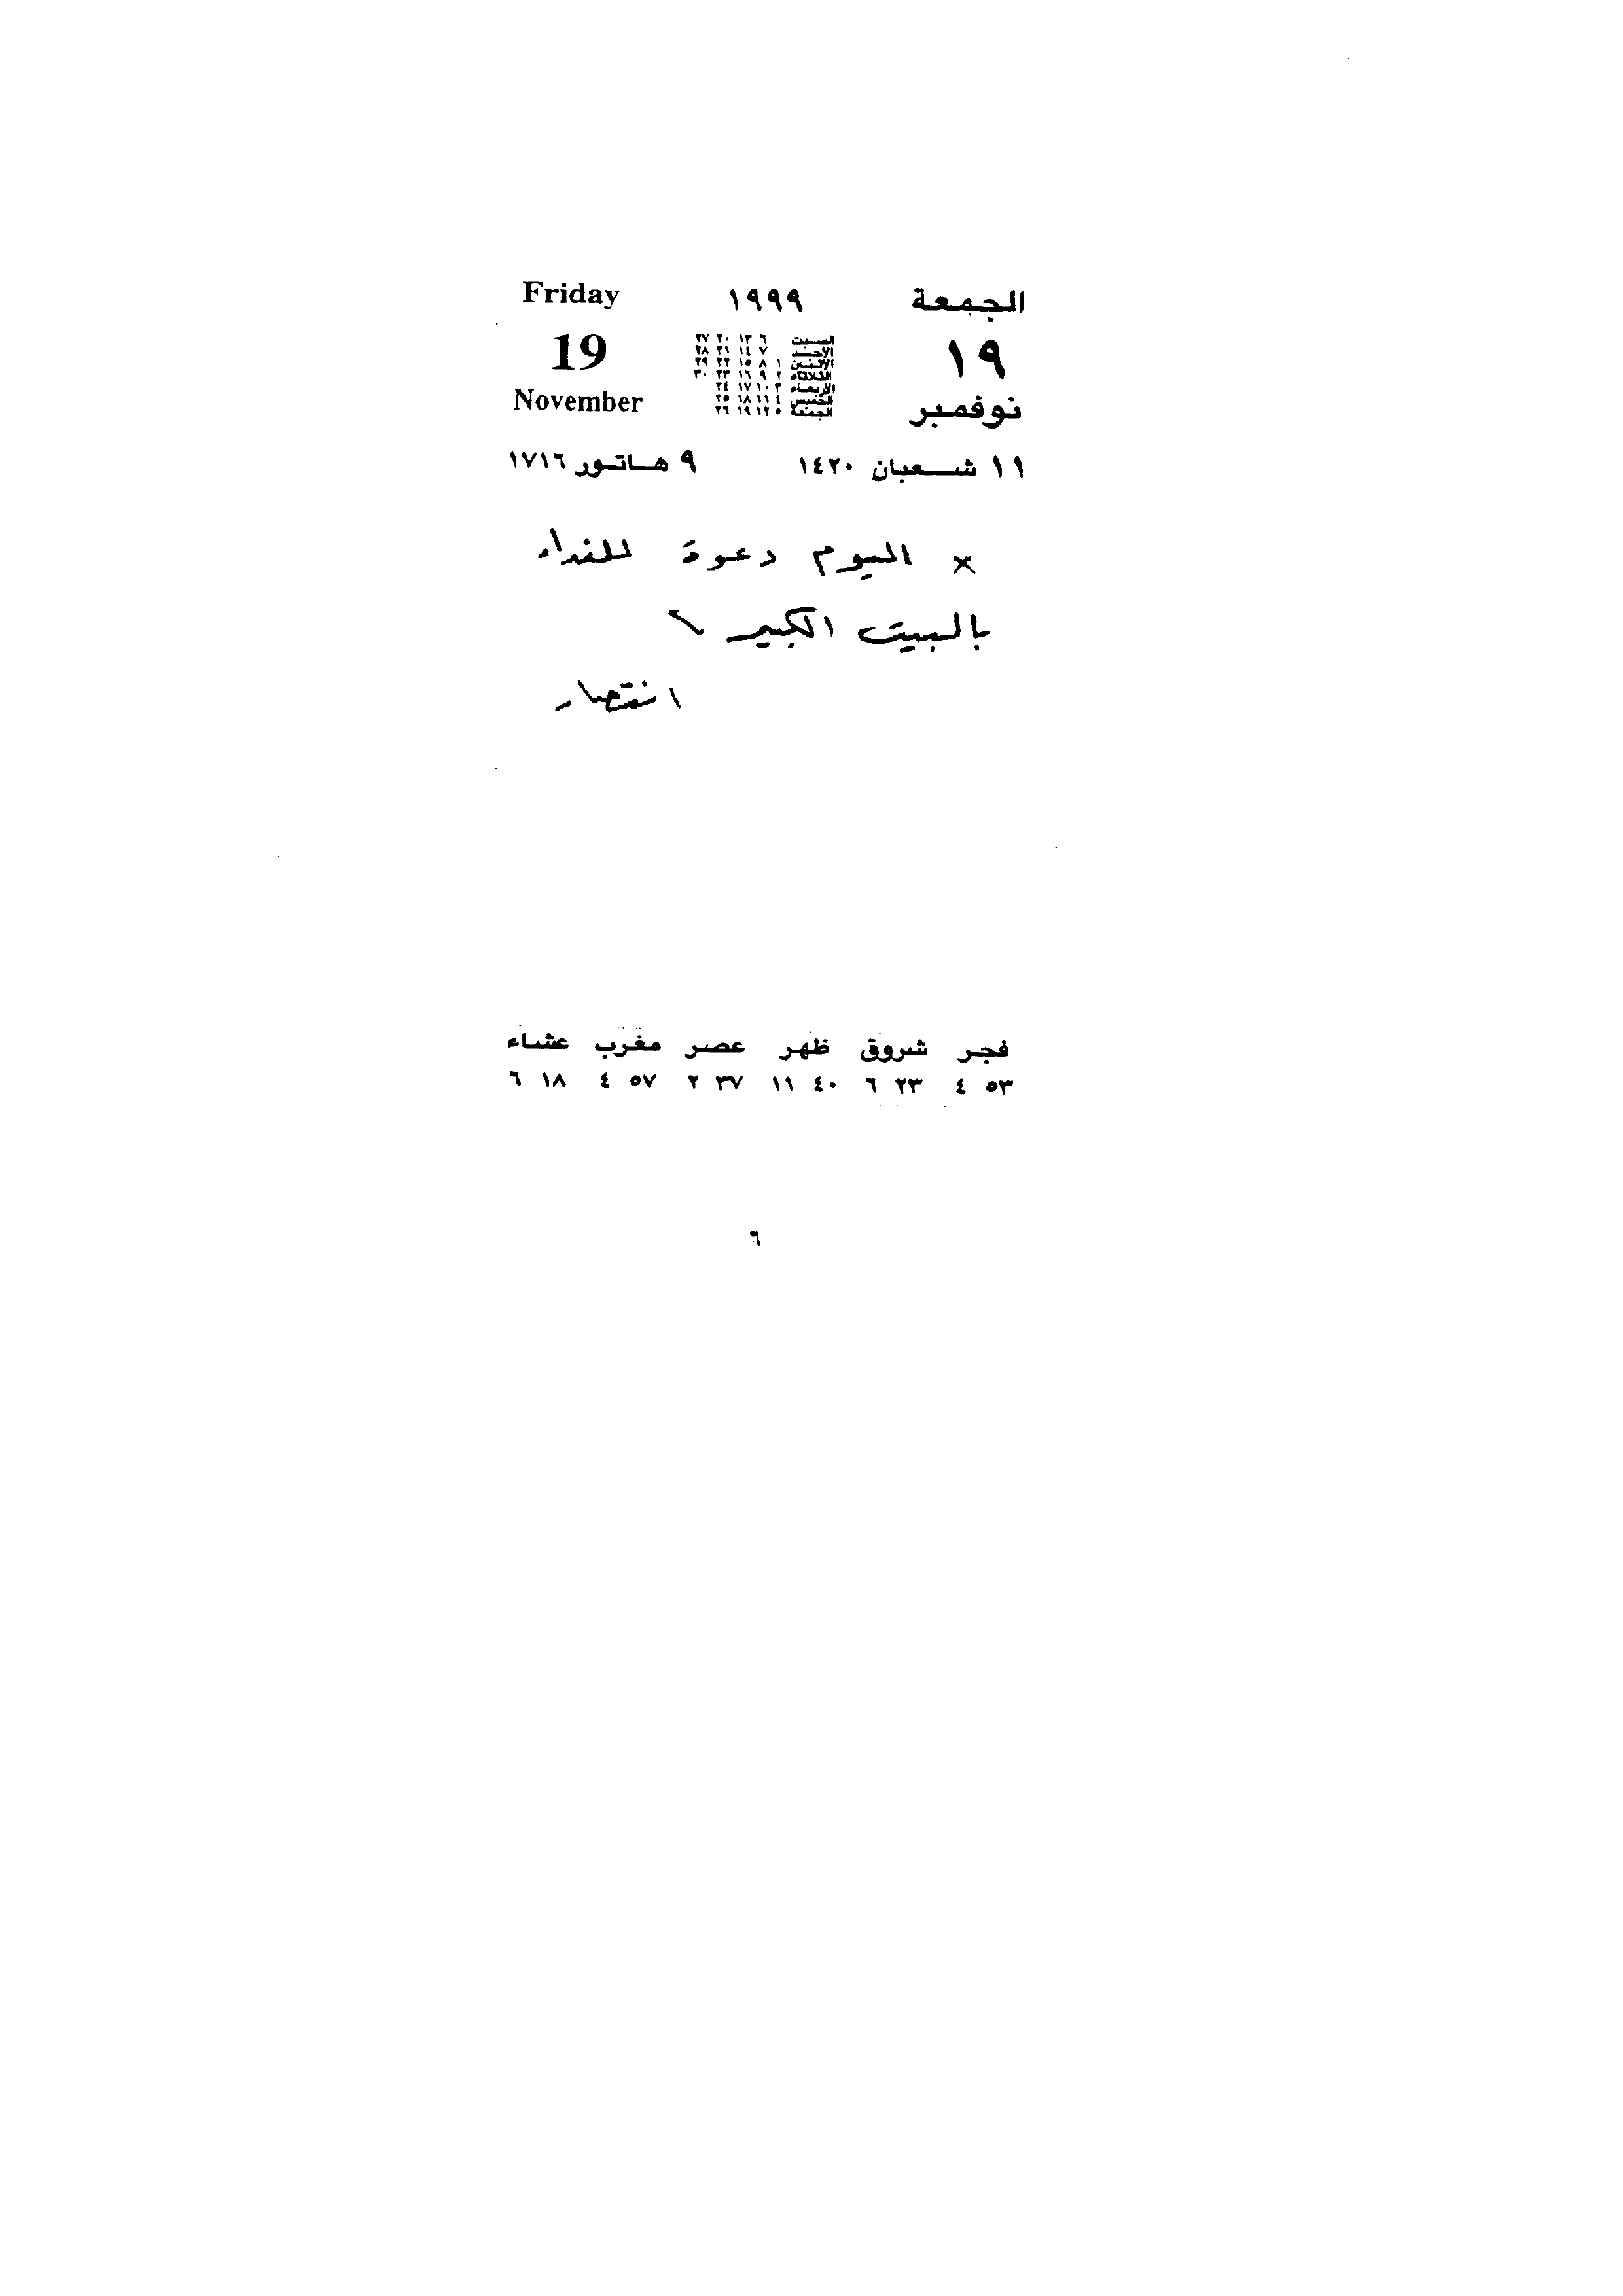 الجمعة ١٩٩٩ Friday
١٩ 19
نوفمبر November
السبت ٦ ١٣ ٢٠ ٢٧
الأحد ٧ ١٤ ٢١ ٢٨
الاثنين ١ ٨ ١٥ ٢٢ ٢٩
الثلاثاء ٢ ٩ ١٦ ٢٣ ٣٠
الأربعاء ٣ ١٠ ١٧ ٢٤
الخميس ٤ ١١ ١٨ ٢٥
الجمعة ٥ ١٢ ١٩ ٢٦
١١ شعبان ١٤٢٠ ٩ هاتور ١٧١٦
× اليوم دعوة للغداء
بالبيت الكبير
انتصار
فجر شروق ظهر عصر مغرب عشاء
٥٣ ٤ ٢٣ ٦ ٤٠ ١١ ٣٧ ٢ ٥٧ ٤ ١٨ ٦
٦